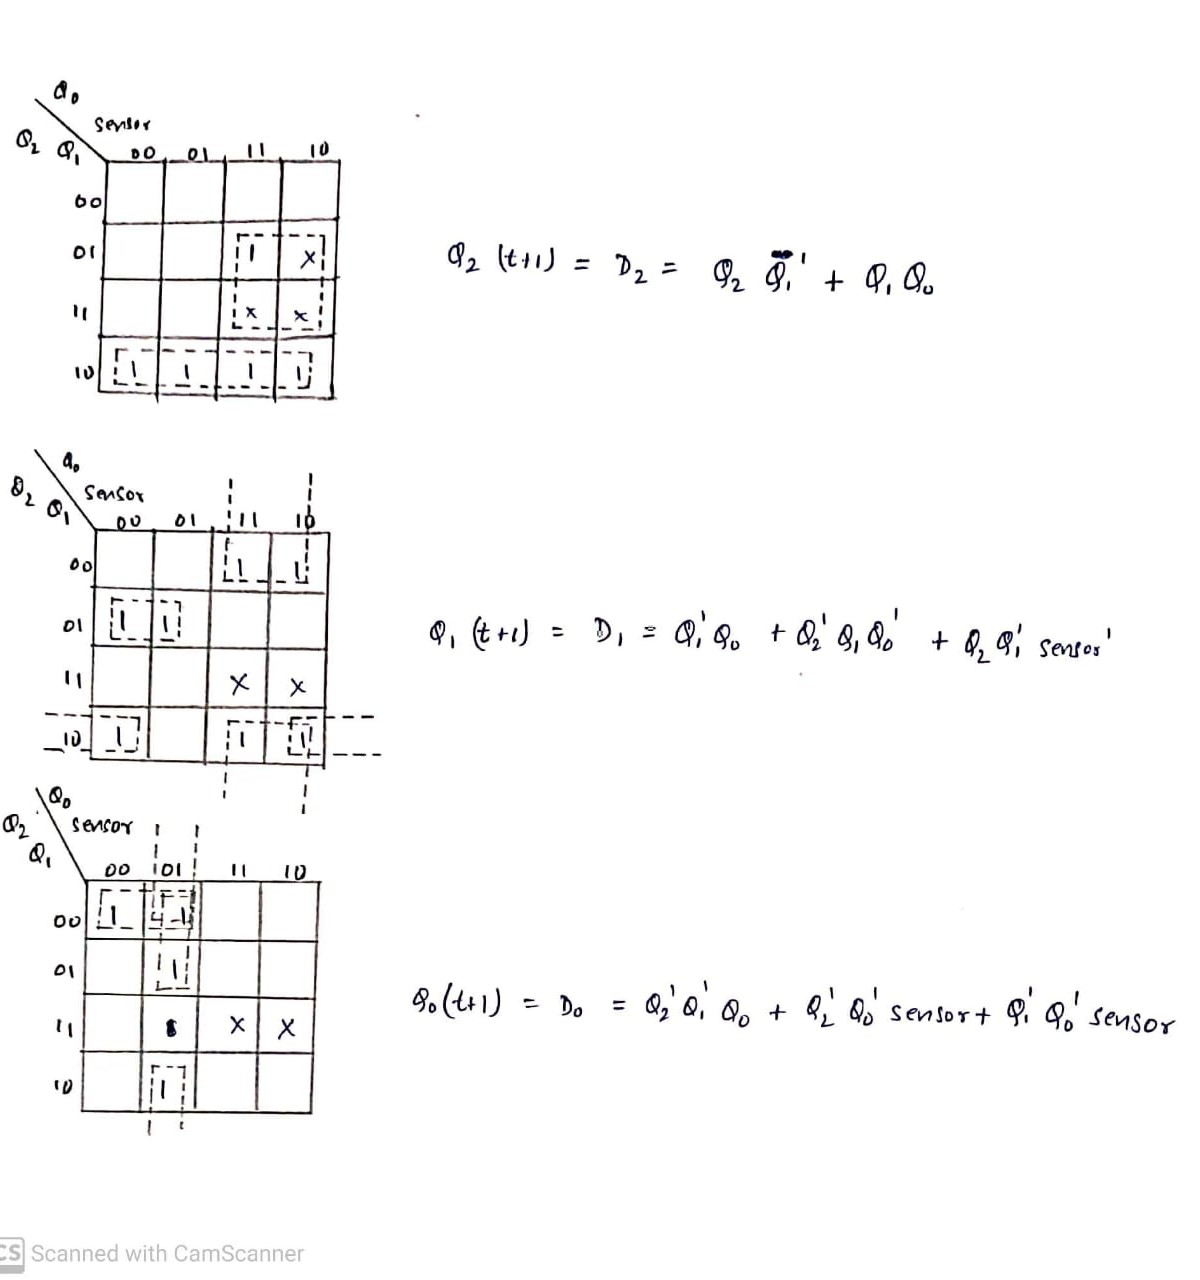 Q₀
Sensor
Q₂ Q₁
00 01 11 10
00
01 1 X
11 X X
10 1 1 1 1
Q₂ (t+1) = D₂ = Q₂ Q₁' + Q₁ Q₀
Q₀
Sensor
Q₂ Q₁
00 01 11 10
00 1 1
01 1 1
11 X X
10 1 1 1
Q₁ (t+1) = D₁ = Q₁' Q₀ + Q₂' Q₁ Q₀' + Q₂ Q₁' sensor'
Q₀
Sensor
Q₂
Q₁
00 01 11 10
00 1 1
01 1
11 X X
10 1
Q₀(t+1) = D₀ = Q₂' Q₁' Q₀ + Q₂' Q₀' sensor + Q₁' Q₀' sensor
CS Scanned with CamScanner